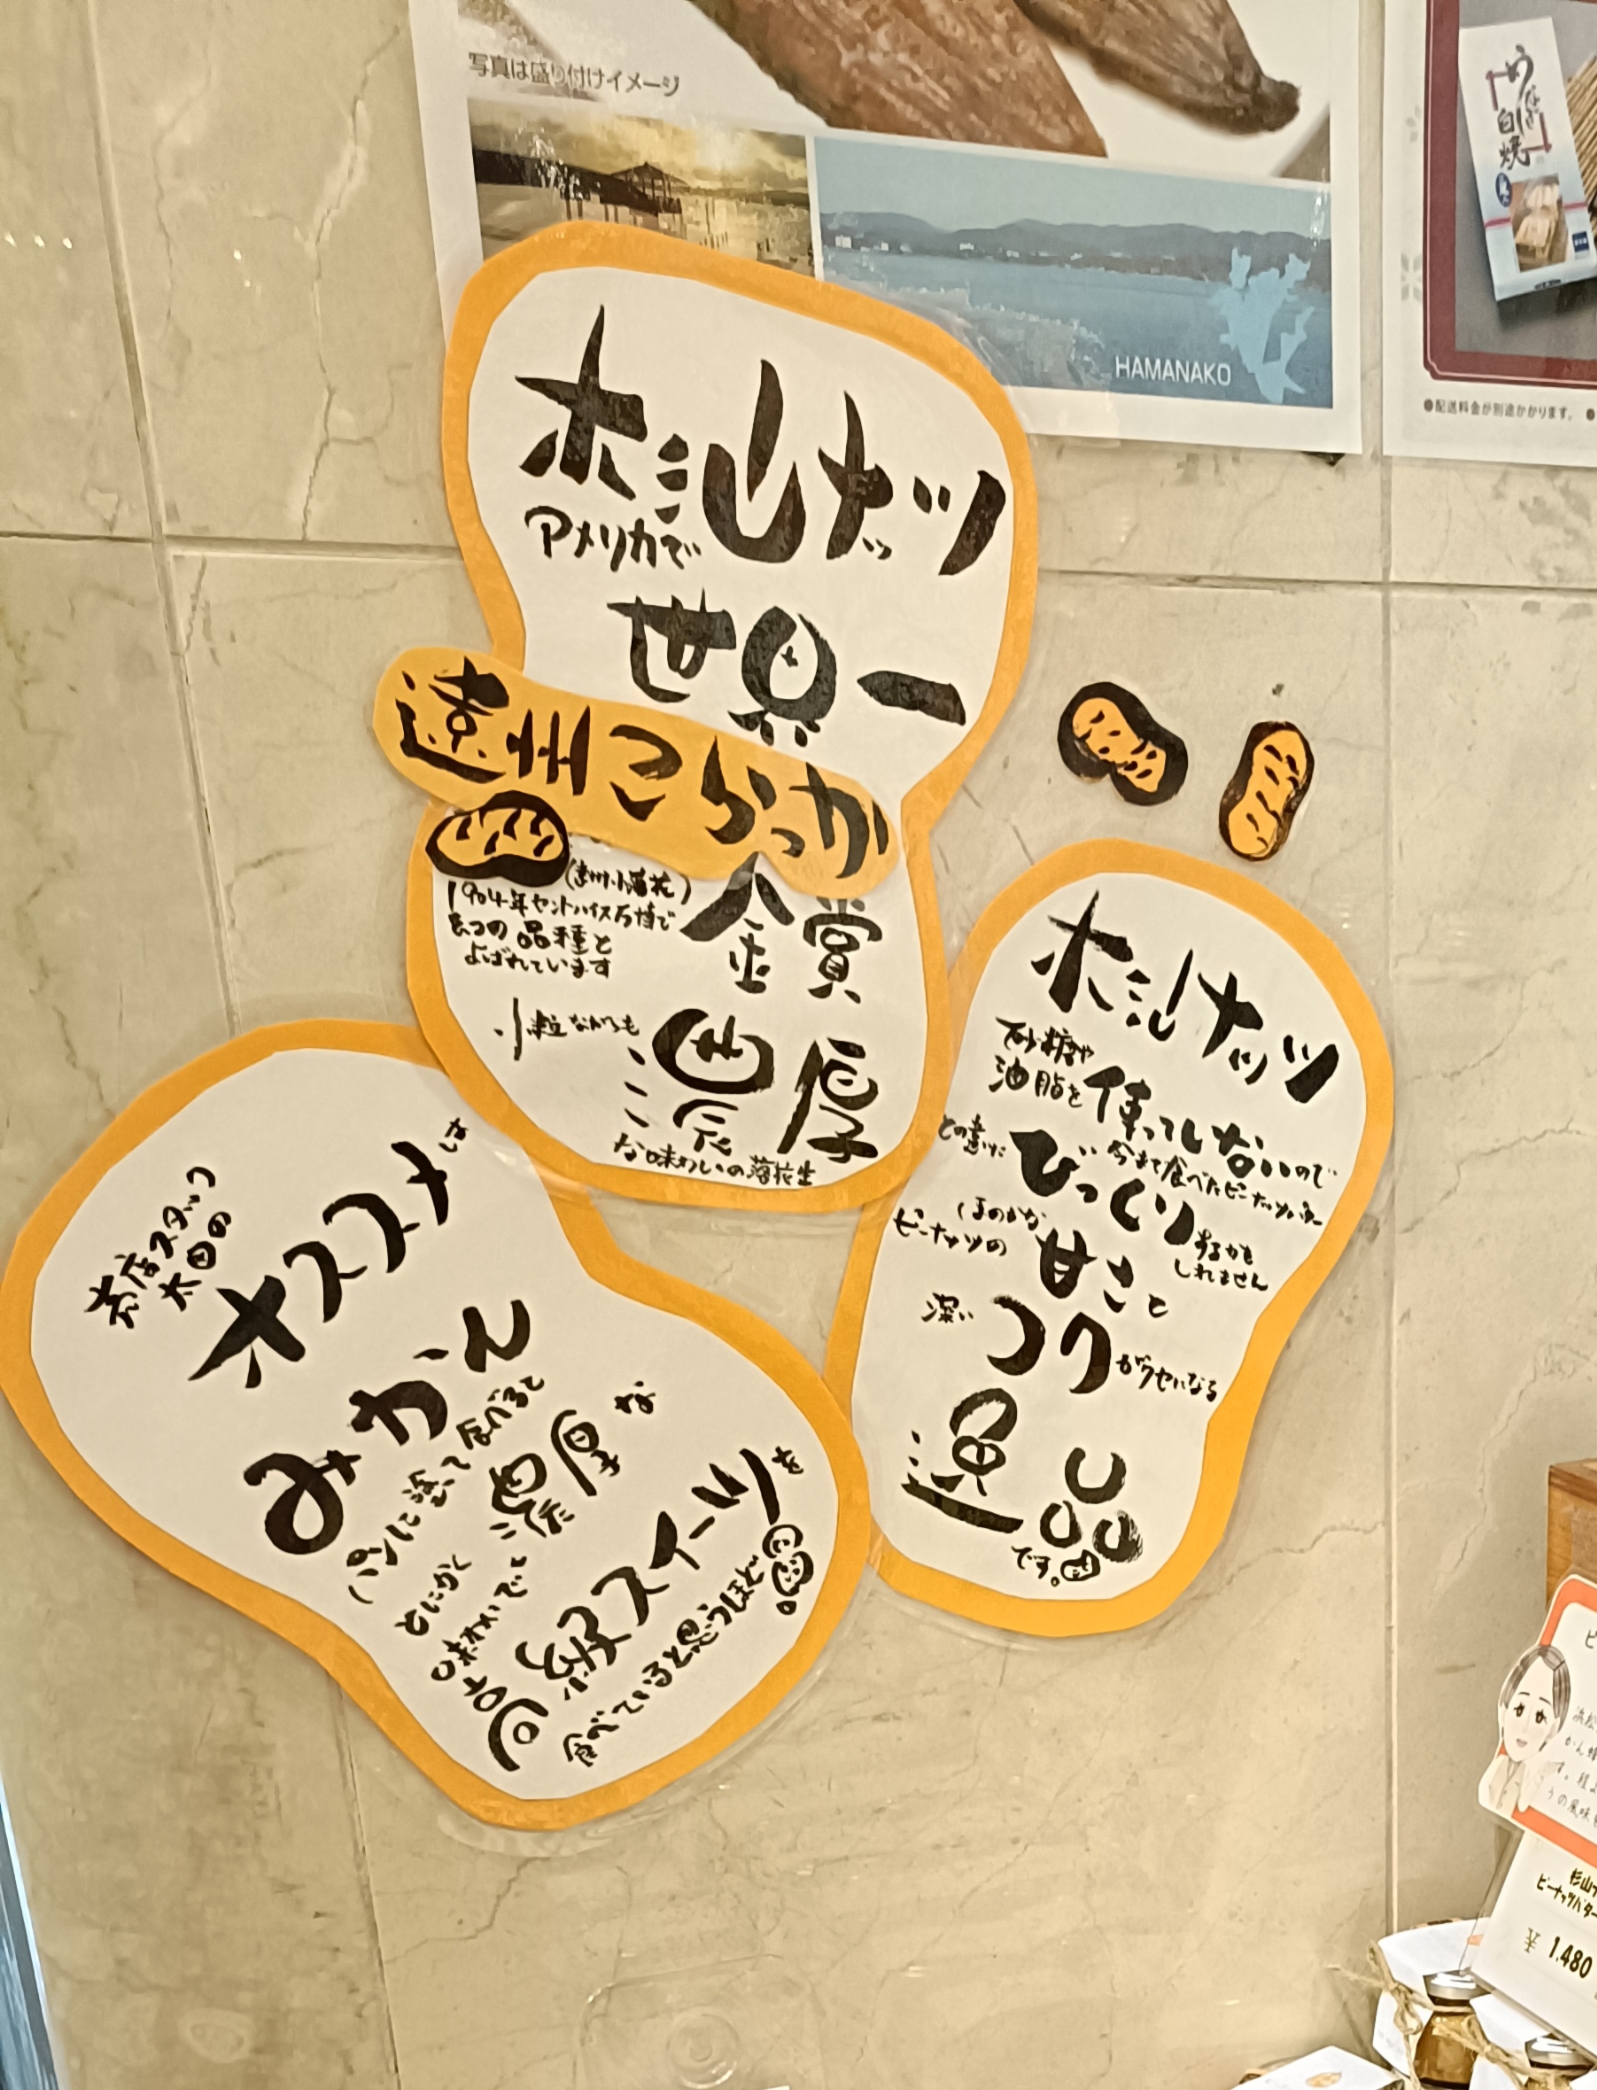 写真は盛り付けイメージ
HAMANAKO
うなぎ
白焼
●配送料金が別途かかります。
杉山ナッツ
アメリカで
世界一
遠州こらっか
(遠州小落花)
1904年セントルイス万博で
金賞
よばれています
小粒ながらも
濃厚
な味わいの落花生
杉山ナッツ
砂糖や
油脂を
使っていないので
今まで食べたピーナッツバター
との違いに
びっくり
するかも
しれません
ピーナッツの
ほのかな
甘さと
深い
コク
がクセになる
逸品
です。
当店スタッフ
太田の
オススメは
みかん
パンに塗って食べると
とにかく
濃厚な
味わいで
高級スイーツを
食べていると思うほど
杉山ナ
ピーナッツバター
¥1,480